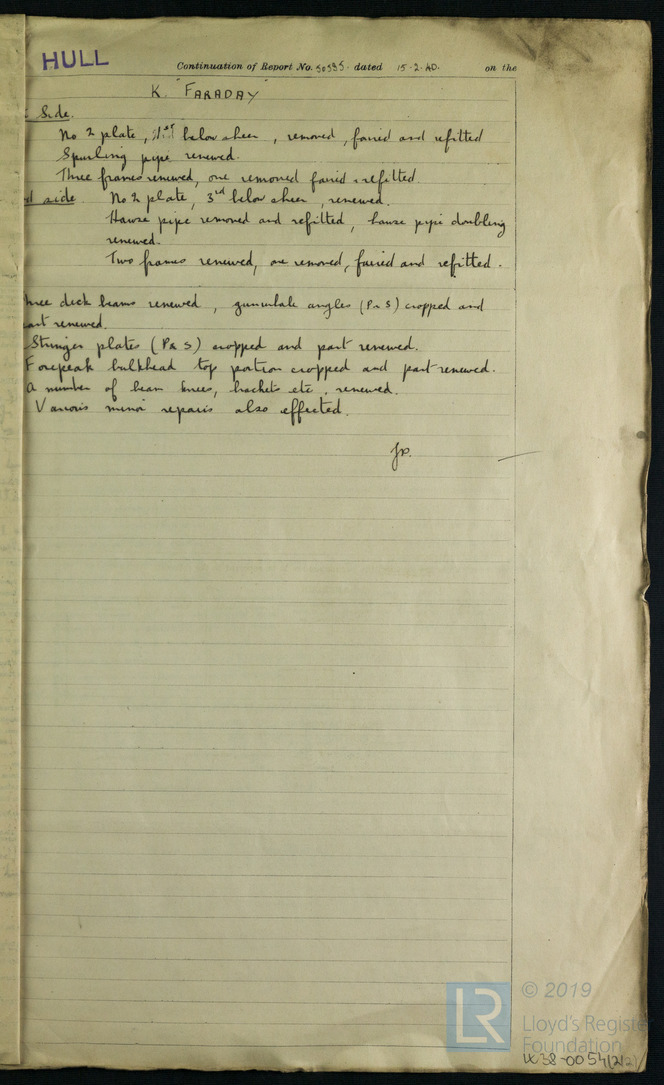 HULL
Continuation of Report No. 50535. dated 15-2-40. on the
K. "FARADAY"
Side.
No 2 plate, 1st below sheer, removed, faired and refitted
Spurling pipe renewed.
Three frames renewed, one removed faired & refitted
side No 2 plate, 3rd below sheer, renewed.
Hawse pipe removed and refitted, hawse pipe doubling
renewed.
Two frames renewed, one removed, faired and refitted.
hree deck beams renewed, gunwhale angles (P & S) cropped and
art renewed.
Stringer plates (P & S) cropped and part renewed.
Forepeak bulkhead top portion cropped and part renewed.
A number of beam knees, brackets etc. renewed.
Various minor repairs also effected.
© 2019
LR
Lloyd's Register
Foundation
W38-0054(2/2)